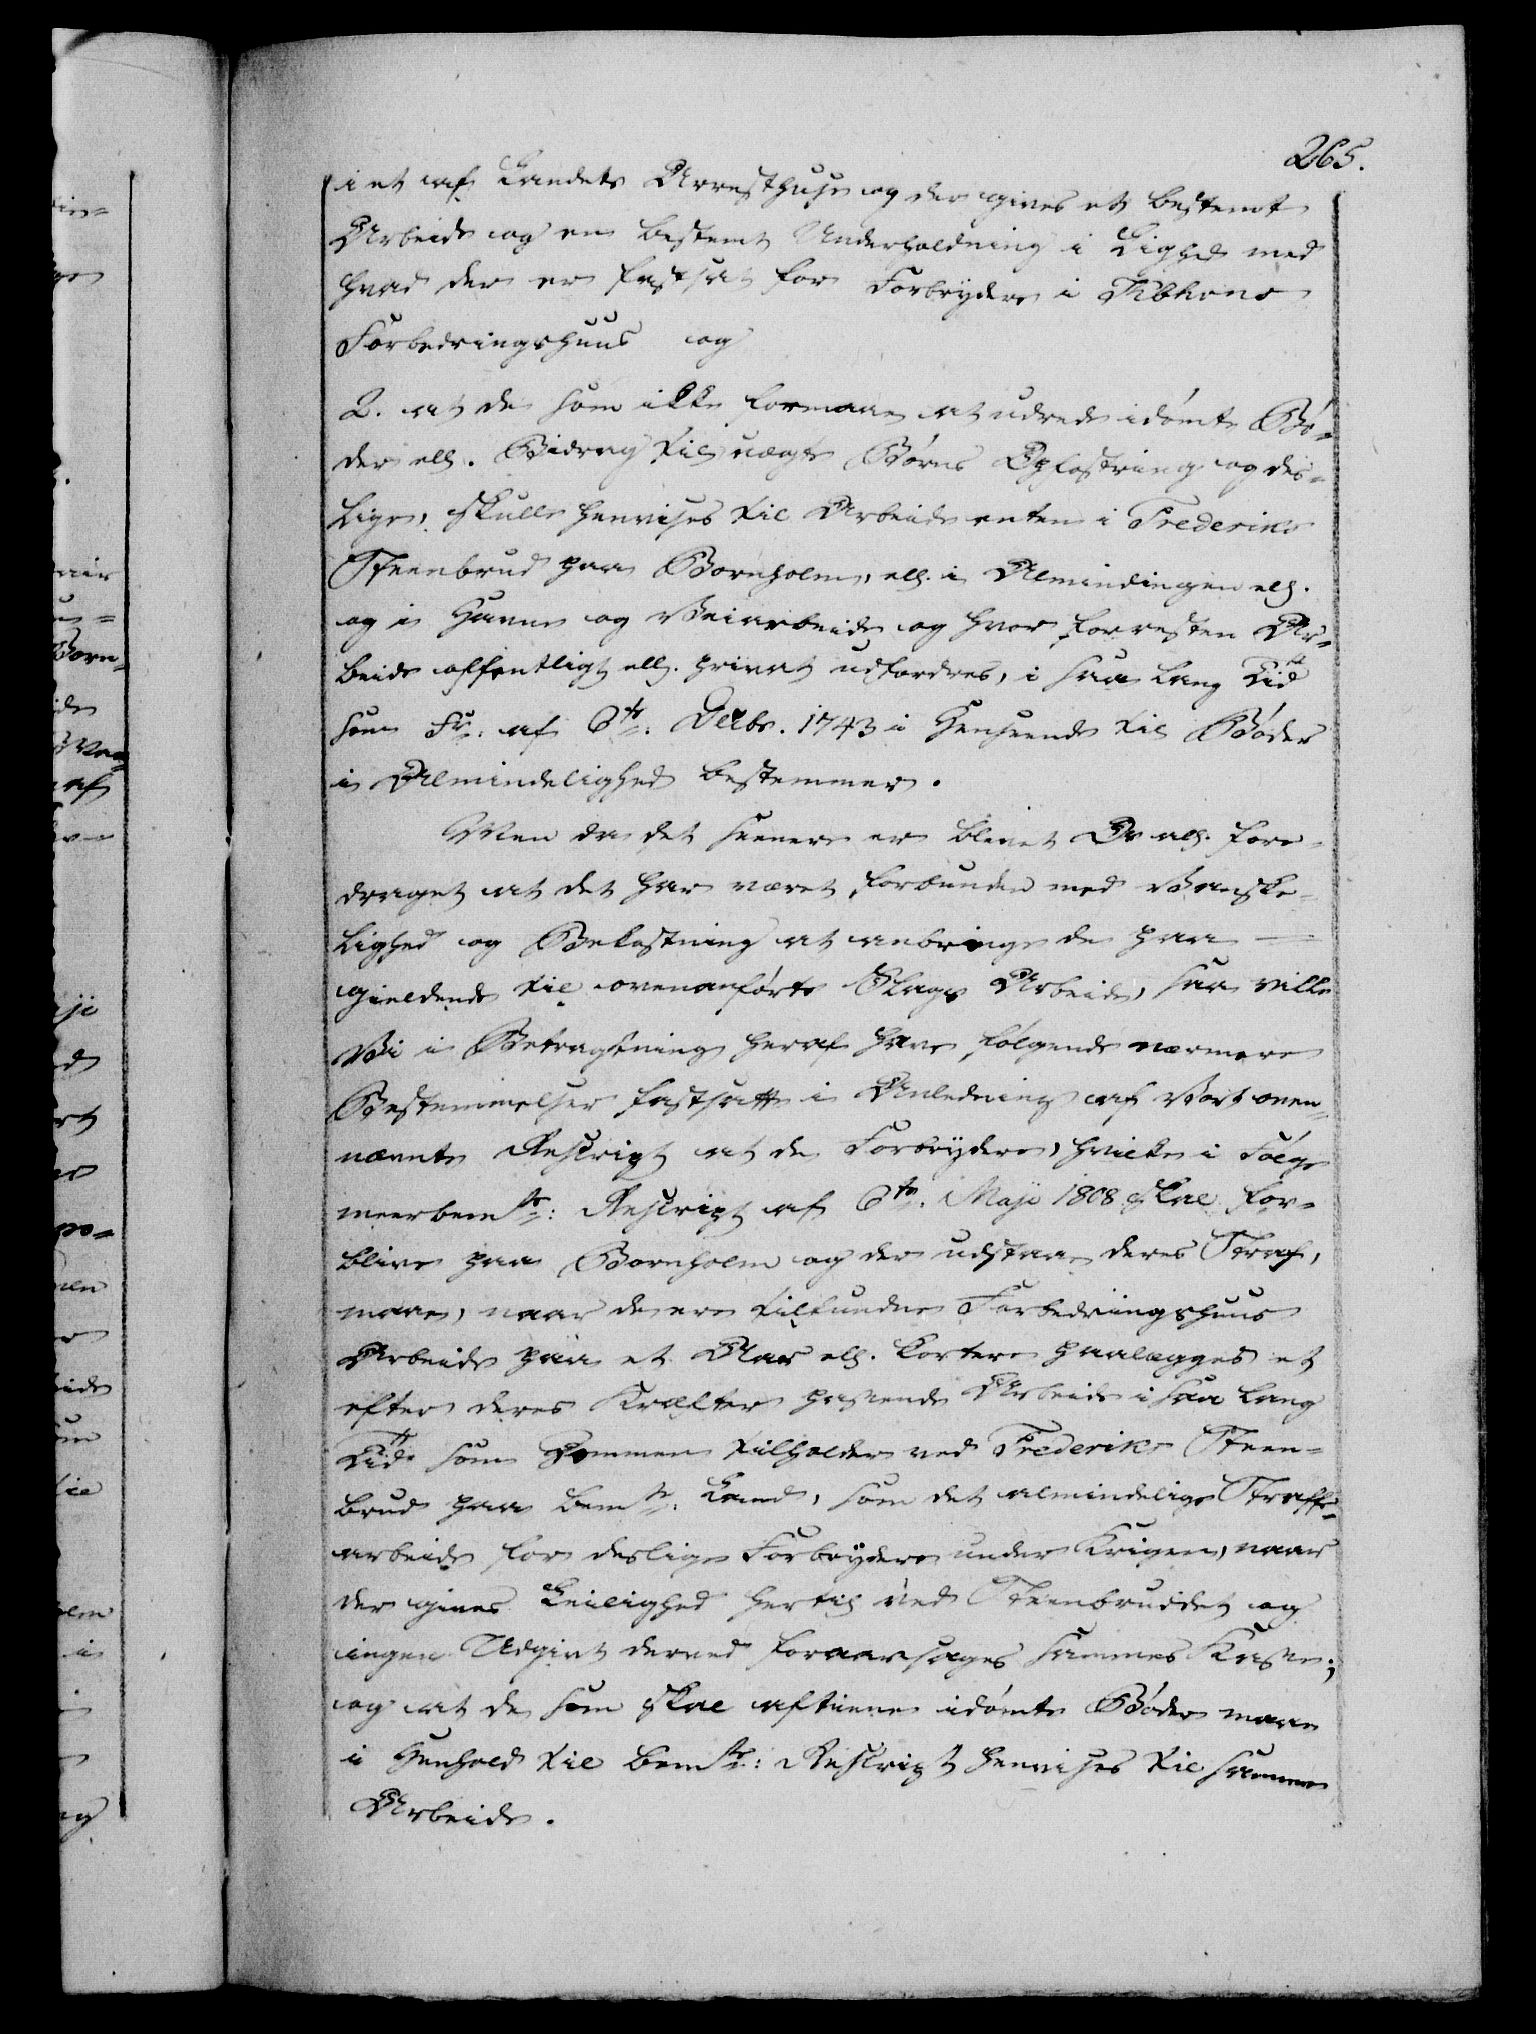 265.
i et af Landets Arresthuse og der gives et bestemt
Arbeide og en bestemt Underholdning i Liighed med
hvad der er fastsat for Forbrydere i Kbhvns
Forbedringshuus og
2. at de som ikke formaae at udrede idømte Bø-
der ell. Bidrag til uægte Børns Opfostring og des-
lige, skulle henvises til Arbeide enten i Frederiks
Steenbrud paa Bornholm, ell. i Almindingen ell.
og i Havne og Veiarbeide og hvor forresten Ar-
beide offentligt ell. privat udfordres, i saa lang Tid
som Fr. af 6te. Decbr. 1743 i Henseende til Bøder
i Almindelighed bestemmer.
Men da det seenere er blevet Os all. fore-
draget at det har været forbunden med Vanske-
lighed og Bekostning at anbringe de paa-
gieldende til ovenanførte Slags Arbeide, saa ville
Vi i Betragtning heraf have følgende nærmere
Bestemmelser fastsatte i Anledning af Vort oven-
nævnte Rescript at de Forbrydere, hvilke i Følge
meerbemte: Rescript af 6te. Maji 1808 skal for-
blive paa Bornholm og der udstaae deres Straf,
maae, naar de ere tilfundne Forbedringshuus
Arbeide paa et Aar ell. kortere paalægges et
efter deres Kræfter passende Arbeide i saa lang
Tid som Dommen tilholder ved Frederiks Steen-
brud paa bemte. Land, som det almindelige Straffe-
arbeide for deslige Forbrydere under Krigen, naar
der gives Leilighed hertil ved Steenbruddet og
ingen Udgivt derved foraarsages sammes Kasse;
og at de som skal aftiene idømte Bøder maae
i Henhold til bemte: Rescript henvises til samme
Arbeide.